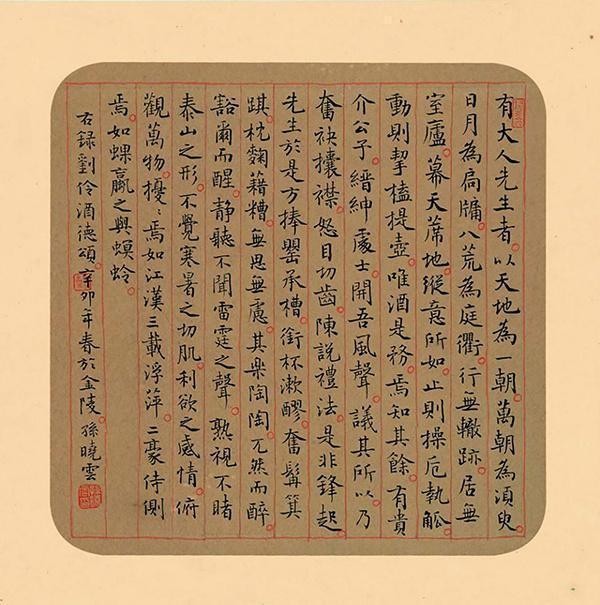 有大人先生者以天地為一朝萬朝為湏臾
日月為扃牖八荒為庭衢行無轍跡居無
室廬幕天蓆地縱意所如止則操卮執觚
動則挈榼提壺唯酒是務焉知其餘有貴
介公子縉紳處士聞吾風聲議其所以乃
奮袂攘襟怒目切齒陳說禮法是非鋒起
先生於是方捧罌承槽銜杯漱醪奮髯箕
踑枕麴藉糟無思無慮其樂陶陶兀然而醉
豁爾而醒靜聽不聞雷霆之聲熟視不睹
泰山之形不覺寒暑之切肌利欲之感情俯
觀萬物擾〻焉如江漢三載浮萍二豪侍側
焉如蜾蠃之與螟蛉
右錄劉伶酒德頌辛卯年春於金陵孫曉雲